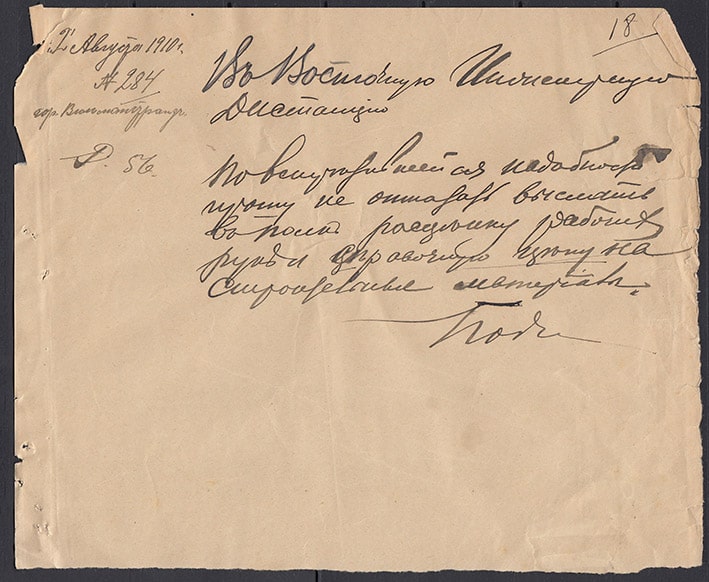 18
2 Августа 1910 г.
№ 284
гор. Вильманстранд.
Д. 56.
Въ Восточную Инженерную
Дистанцию
По встретившейся надобности
прошу не отказать выслать
въ полкъ расценку рабочихъ
рукъ и справочную цену на
строительные материалы.